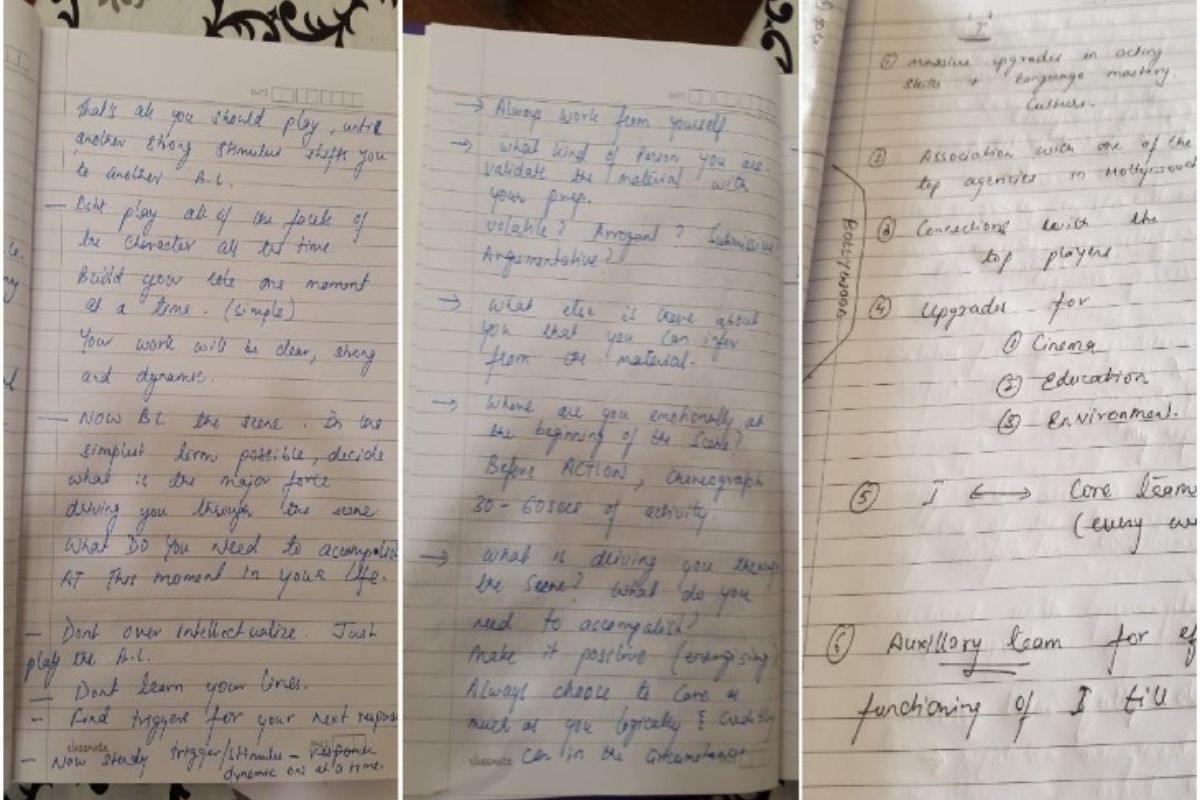 DATE
That's all you should play, until
another strong stimulus shifts you
to another B.L.
— Dont play all of the facets of
the character all the time.
Build your role one moment
at a time. (simple)
Your work will be clear, strong
and dynamic.
— NOW BL the scene. In the
simplest form possible, decide
what is the major force
driving you through the scene
What DO YOU Need to accomplish
AT This moment in your life.
— Dont over intellectualize. Just
play the B.L.
— Dont learn your lines.
— Find triggers for your next response
— Now study trigger/stimulus – response
dynamic one at a time.
classmate
DATE
→ Always work from yourself
→ What kind of Person you are.
validate the material with
your prep.
volatile? Arrogant? Submissive
Argumentative?
→ What else is there about
you that you can infer
from the material.
→ Where are you emotionally at
the beginning of the scene?
Before ACTION, choreograph
30 - 60 secs of activity.
→ What is driving you through
the scene? What do you
need to accompalish?
Make it positive (energising)
Always choose to care as
much as you logically & credibly
can in the circumstance
classmate
I
① massive upgrades in acting
skills + language mastery
culture.
② Association with one of the
top agencies in Hollywood
③ Connections with the
top players.
BOLLYWOOD
④ upgrades for
① Cinema
② Education
③ Environment.
⑤ I ⟷ Core team
(every
⑥ Auxillary team for ef
functioning of I till